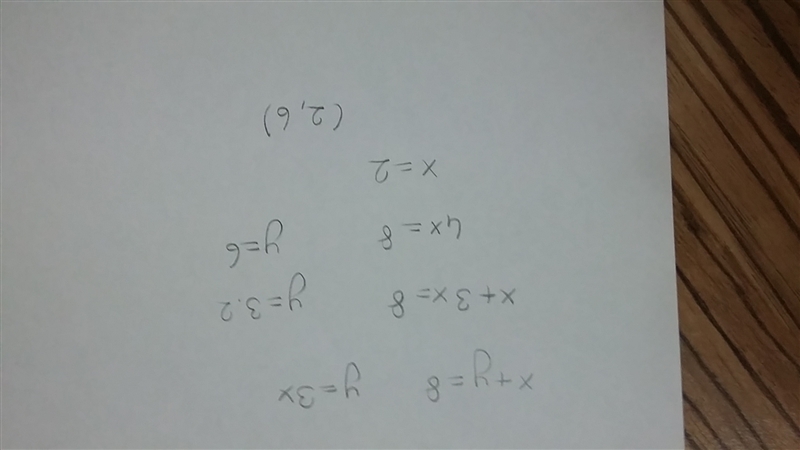 x + y = 8 y = 3x
x + 3x = 8 y = 3·2
4x = 8 y = 6
x = 2
(2, 6)